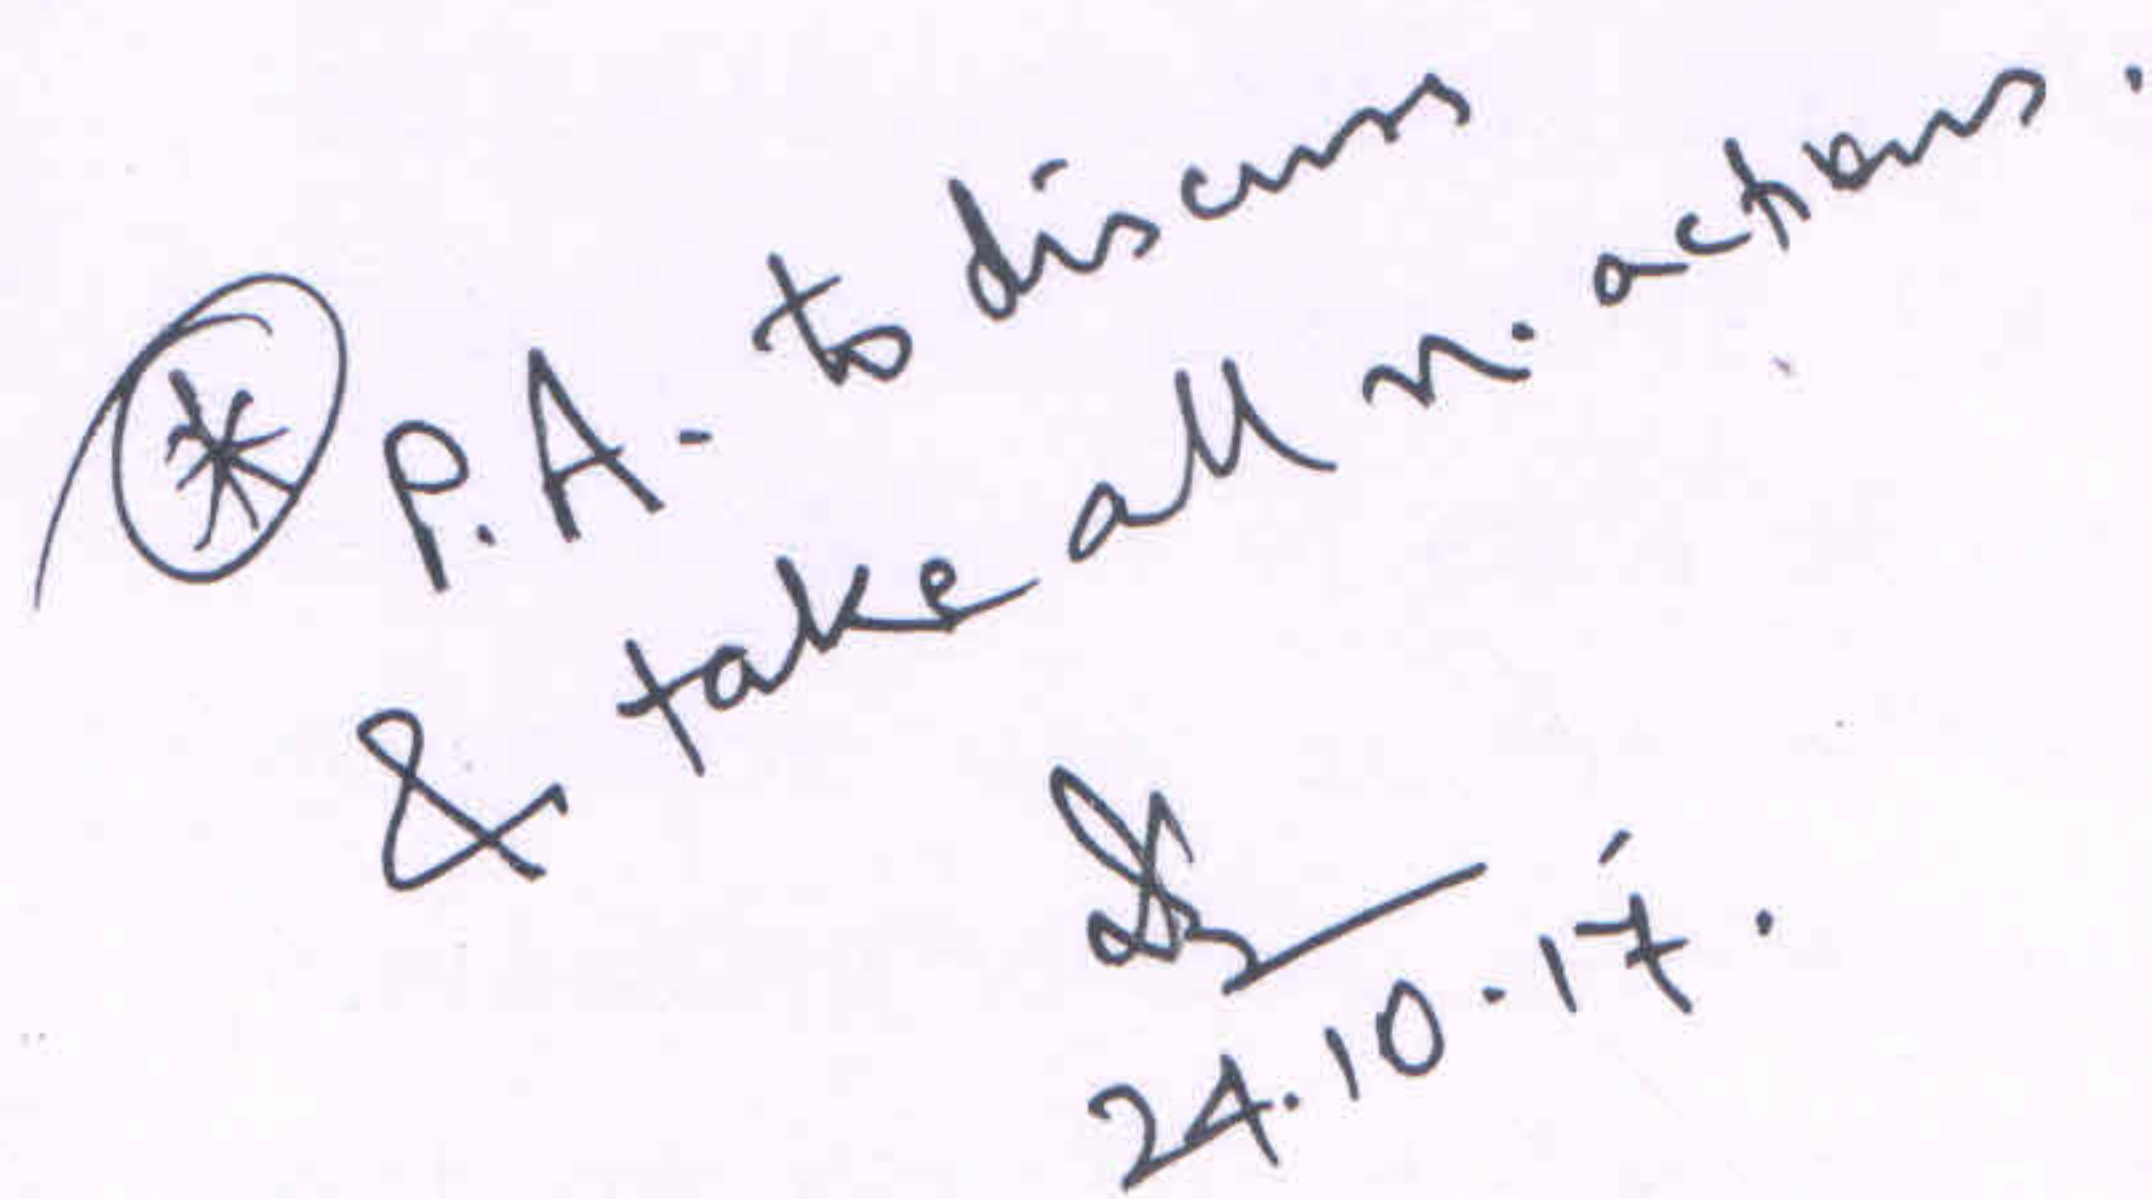 * P.A - to discuss
& take all n. actions.
24.10.17.